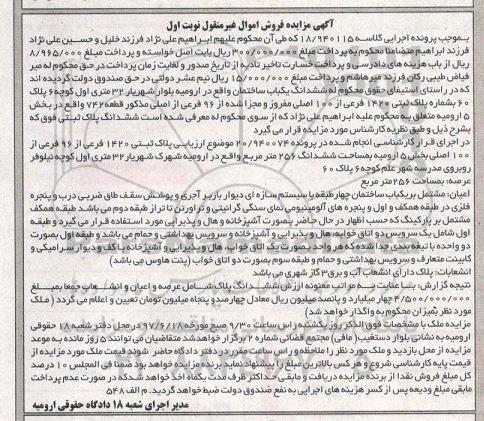 آگهی مزایده فروش اموال غیرمنقول نوبت اول
بموجب پرونده اجرایی کلاسه ۱۸/۹۴۰۱۱۵ که طی آن محکوم علیهم ابراهیم علی نژاد فرزند خلیل و حسین علی نژاد
فرزند ابراهیم متضامنا محکوم به پرداخت مبلغ ۳۰۰/۰۰۰/۰۰۰ ریال بابت اصل خواسته و پرداخت مبلغ ۸/۹۶۵/۰۰۰
ریال از باب هزینه های دادرسی و پرداخت خسارت تاخیر تادیه از تاریخ صدور و لغایت زمان پرداخت در حق محکوم له میر
فیاض طیبی رکان فرزند میرهاشم و پرداخت مبلغ ۱۵/۰۰۰/۰۰۰ ریال نیم عشر دولتی در حق صندوق دولت گردیده اند
که در راستای استیفای حقوق محکوم له ششدانگ یکباب ساختمان واقع در ارومیه بلوار شهریار ۳۲ متری اول کوچه۶ پلاک
۶۰ بشماره پلاک ثبتی ۱۴۲۰ فرعی از ۱۰۰ اصلی مفروز و مجزا شده از ۹۶ فرعی از اصلی مذکور قطعه۷۴۲ واقع در بخش
۵ ارومیه متعلق به محکوم علیه ابراهیم علی نژاد که از سوی محکوم له معرفی شده است ششدانگ پلاک ثبتی فوق که
بشرح ذیل و طبق نظریه کارشناس مورد مزایده قرار می گیرد
در اجرای قرار کارشناسی انجام شده در پرونده ۲۰/۹۴۰۰۷۴ موضوع ارزیابی پلاک ثبتی ۱۴۲۰ فرعی از ۹۶ فرعی از
۱۰۰ اصلی بخش ۵ ارومیه بمساحت ششدانگ ۲۵۶ متر مربع واقع در ارومیه شهرک شهریار ۳۲ متری اول کوچه نیلوفر
روبروی مدرسه شهر علم کوچه۶ پلاک ۶۰
عرصه: بمساحت ۲۵۶متر مربع
اعیان: مشتمل بر یکباب ساختمان چهارطبقه با سیستم سازه ای دیوار باربر آجری و پوشش سقف طاق ضربی درب و پنجره
فلزی در طبقه همکف و اول و پنجره های آلومینیومی نمای سنگی گرانیتی و تراورتن تا تراز طبقه دوم می باشد طبقه همکف
مشتمل بر پارکینگ که حسب اظهار در حال حاضر بصورت آشپزخانه و هال و پذیرایی مورد استفاده قرار می گیرد و طبقه
اول شامل یک سرویس دو اتاق خوابه، هال و پذیرایی و آشپزخانه و سرویس بهداشتی و حمام می باشد و طبقه اول بصورت
دو واحده با تیغه بندی جدا شده که هر واحد بصورت یک اتاق خواب، هال و پذیرایی و آشپزخانه با کف و دیوار سرامیکی و
کابینت متعارف و سرویس بهداشتی و حمام و طبقه سوم بصورت دو اتاق خواب (پنت هاوس می باشد)
انشعابات: پلاک دارای انشعاب آب و برق۳ گاز شهری می باشد
نتیجه گزارش: با عنایت به مراتب معنونه ارزش ششدانگ پلاک شامل عرصه و اعیان و انشعاب جمعا بمبلغ
۴/۵۰۰/۰۰۰/۰۰۰ چهار میلیارد و پانصد میلیون ریال معادل چهارصدو پنجاه میلیون تومان تعیین و اعلام می گردد ( ملک
مورد نظر بمیزان محکوم به واگذار خواهد شد)
مزایده ملک با مشخصات فوق الذکر روز یکشنبه راس ساعت ۹/۳۰ صبح مورخه ۹۷/۶/۱۸ در محل دفتر شعبه ۱۸ حقوقی
ارومیه به نشانی بلوار دستغیب (مافی) مجتمع قضائی شماره ۲ برگزار خواهدشد متقاضیان می توانند ۵ روز مانده به موعد
مزایده از محل بازدید و ملک مورد نظر را ملاحظه و راس ساعت مقرر در دفتر دادگاه حاضر شوند قیمت ملک مورد مزایده از
قیمت پایه کارشناسی شروع و هر کس بالاترین مبلغ را پیشنهاد نماید برنده مزایده خواهد بود ضمنا فی المجلس ۱۰ درصد
کل مبلغ فروش نقدا از برنده مزایده دریافت و مابقی حداکثر ظرف مدت یکماه اخذ خواهد شد که در صورت عدم پرداخت
مابقی مبلغ ودیعه پس از کسر هزینه های اجرایی به نفع صندوق دولت ضبط خواهد گردید. م الف ۵۴۸
مدیر اجرای شعبه ۱۸ دادگاه حقوقی ارومیه